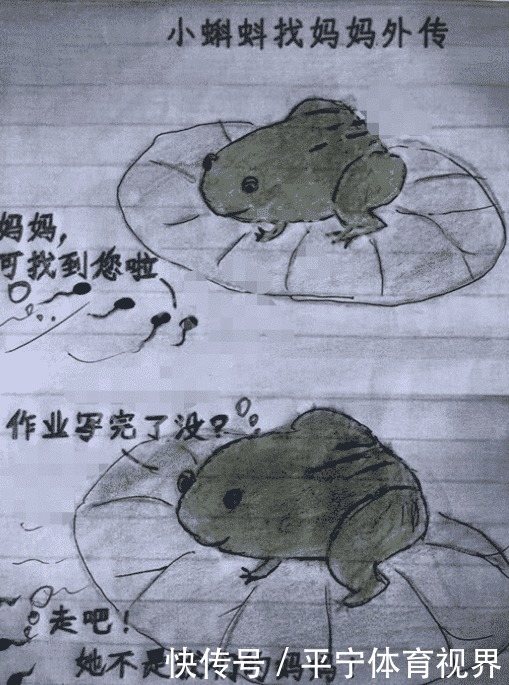 小蝌蚪找妈妈外传
妈妈,
可找到您啦
作业写完了没?
走吧!
她不是 妈妈
快传号/平宁体育视界